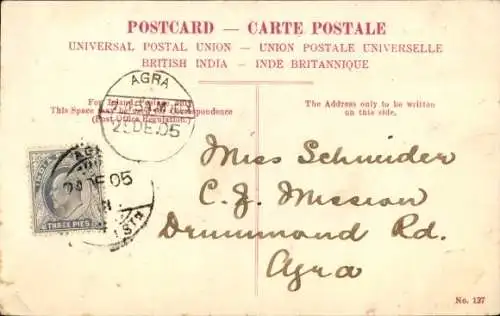 POSTCARD — CARTE POSTALE
UNIVERSAL POSTAL UNION — UNION POSTALE UNIVERSELLE
BRITISH INDIA — INDE BRITANNIQUE
AGRA
2 DE.05
For Inland Postage only
This Space may be used for Correspondence
(Post Office Regulation)
The Address only to be written
on this side.
AG
DE 05
THREE PIES
Miss Schneider
C. J. Mission
Drummond Rd.
Agra
No. 127